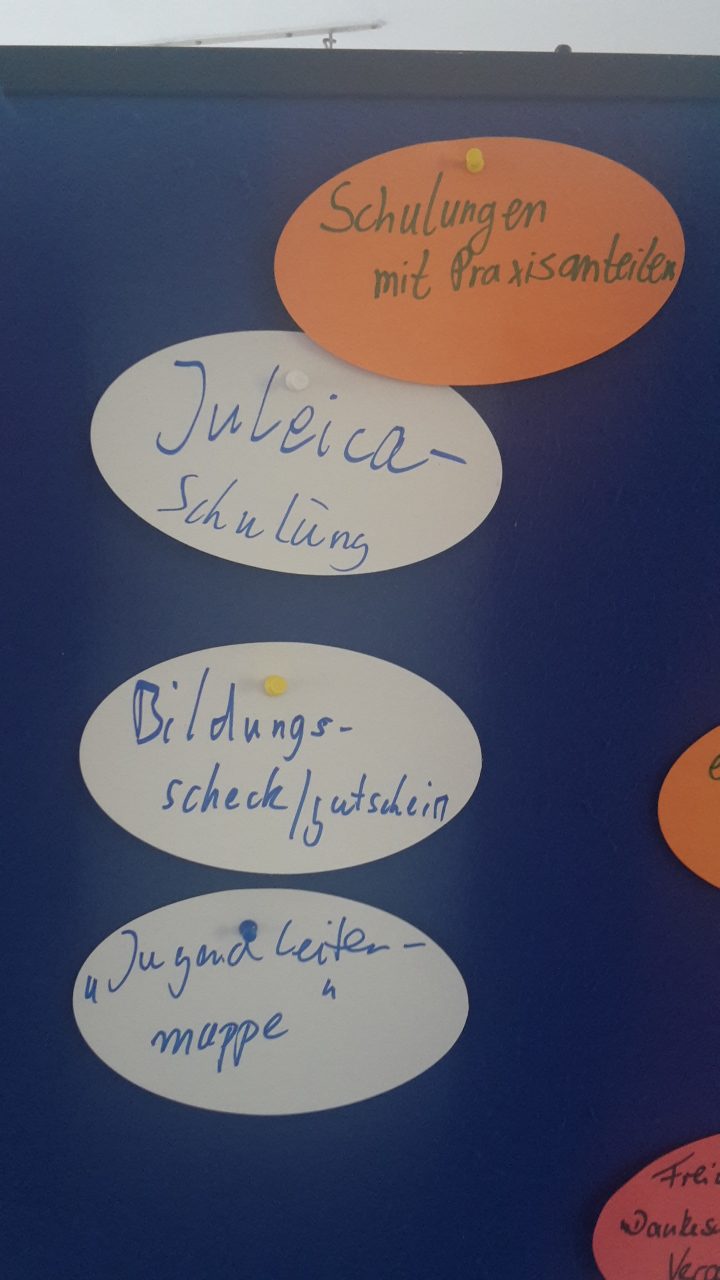 Schulungen
mit Praxisanteilen
Juleica-
Schulung
Bildungs-
scheck/gutschein
„Jugendleiter-
mappe“